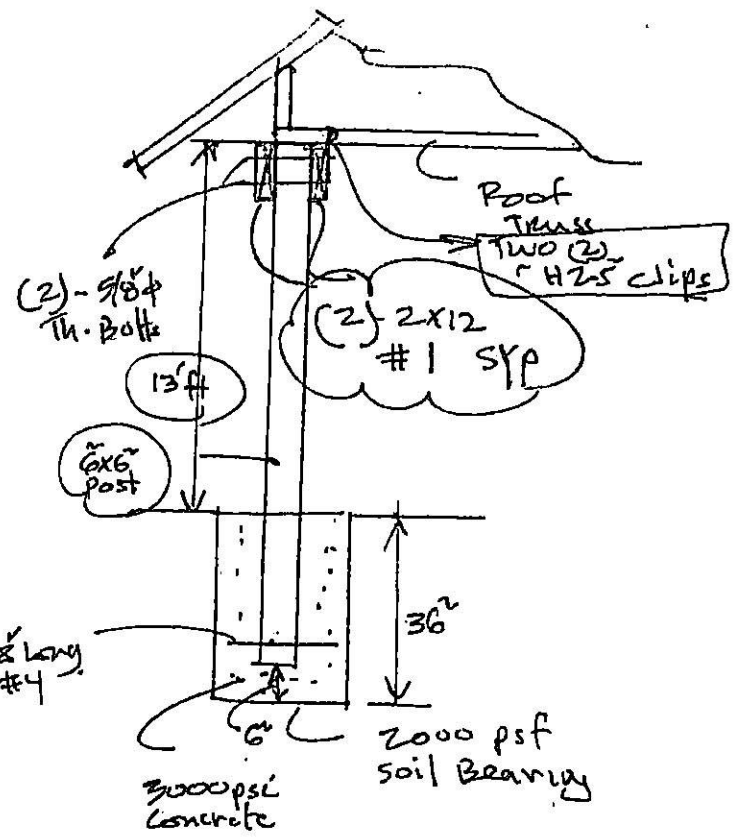 Roof
Truss
TWO (2)
H2.5 clips
(2)- 5/8"ϕ
Th. Bolts
(2)- 2x12
# 1 SYP
13'ft
6x6"
post
36"
Long
#4
6"
2000 psf
Soil Bearing
3000psi
Concrete